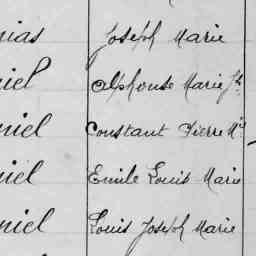 nias Joseph Marie
niel Alphonse Marie Jh
niel Constant Pierre Mie
niel Emile Louis Marie
niel Louis Joseph Marie